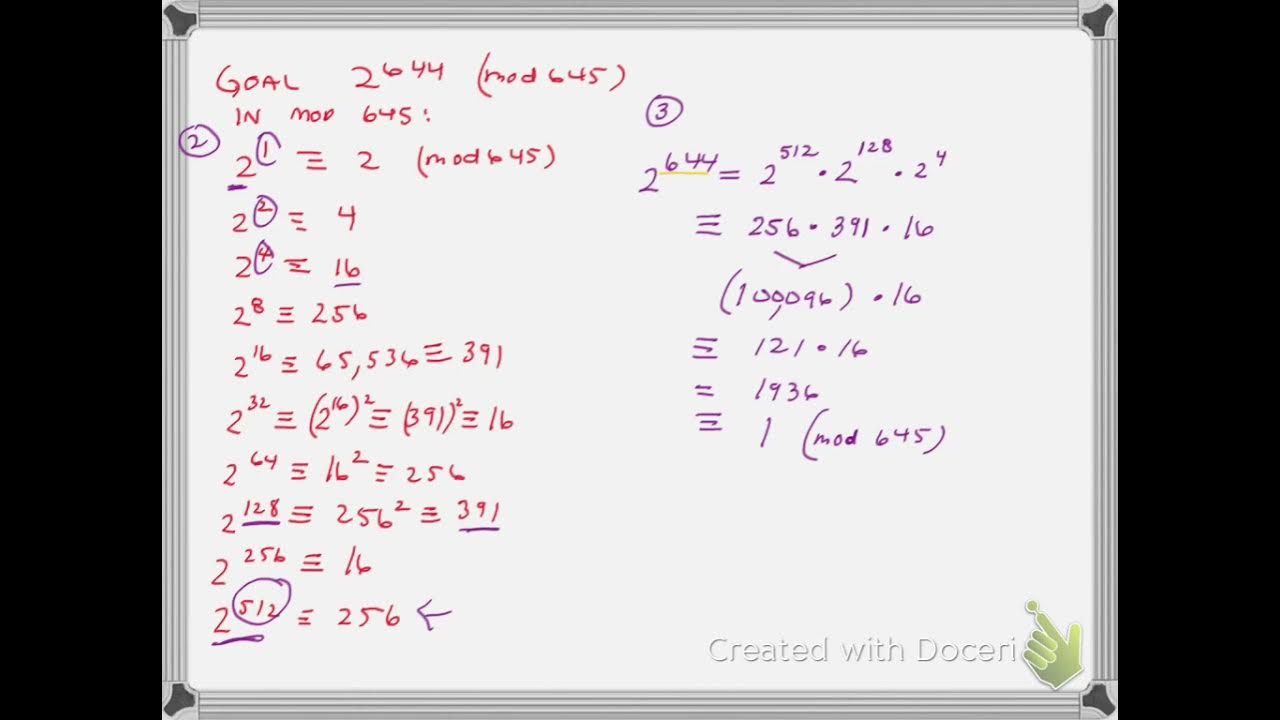 GOAL 2^644 (mod 645)
IN mod 645:
②
2^1 ≡ 2 (mod 645)
2^2 ≡ 4
2^4 ≡ 16
2^8 ≡ 256
2^16 ≡ 65,536 ≡ 391
2^32 ≡ (2^16)^2 ≡ (391)^2 ≡ 16
2^64 ≡ 16^2 ≡ 256
2^128 ≡ 256^2 ≡ 391
2^256 ≡ 16
2^512 ≡ 256 ←
③
2^644 = 2^512 · 2^128 · 2^4
≡ 256 · 391 · 16
(100,096) · 16
≡ 121 · 16
= 1936
≡ 1 (mod 645)
Created with Doceri